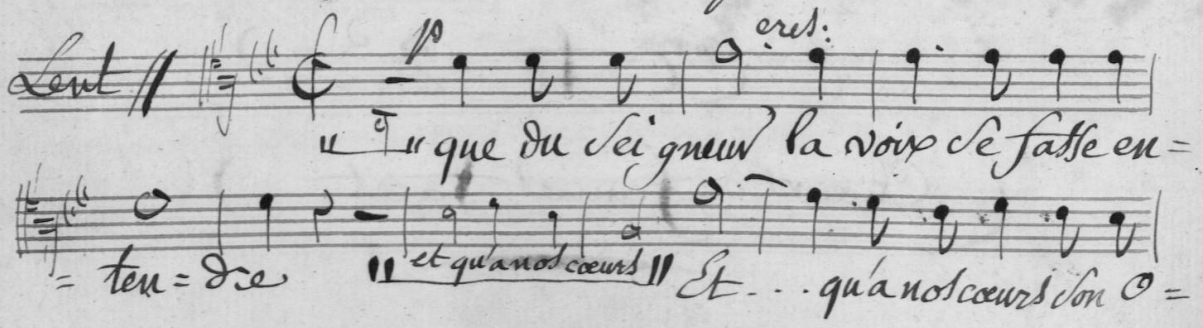 Lent p cres:
que du Seigneur la voix se fasse en=
= ten = dre et qu'a nos cœurs Et . . . qu'a nos cœurs son O =